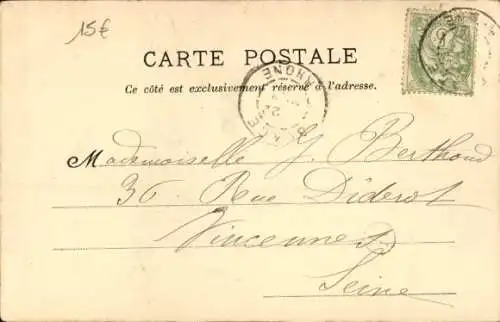 15€
CARTE POSTALE
Ce côté est exclusivement réservé à l'adresse.
RHONE
Mademoiselle J. Berthoud
36. Rue Diderot
Vincennes
Seine